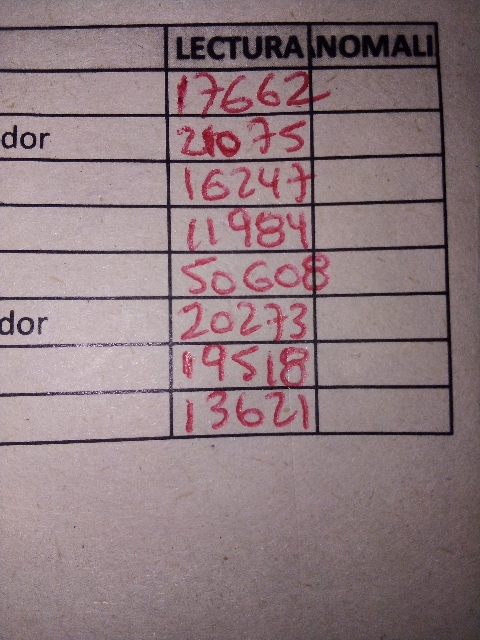 LECTURA NOMALI
17662
dor 21075
16247
11984
50608
dor 20273
19518
13621